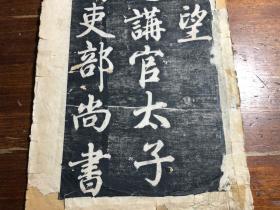 望
講官太子
吏部尚書